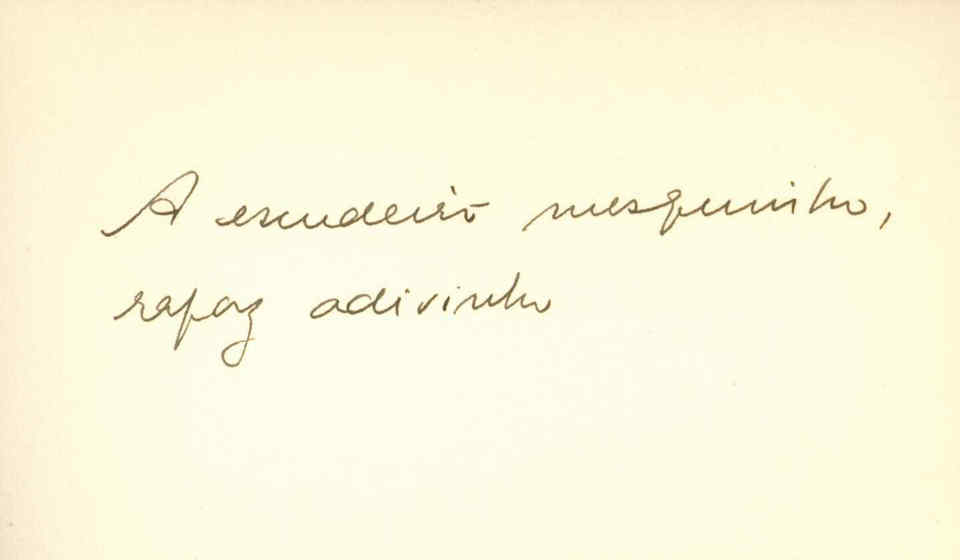 A escudeiro mesquinho,
rapaz adivinho